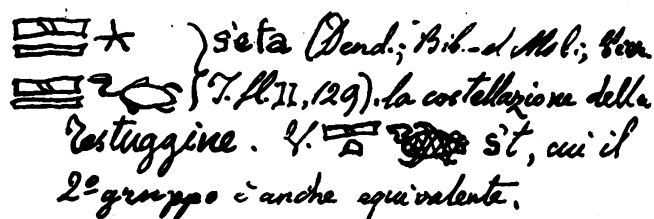 šeta (Dend.;
(T. H. II, 129). la costellazione della
Testuggine. V. št, cui il
2º gruppo è anche equivalente.